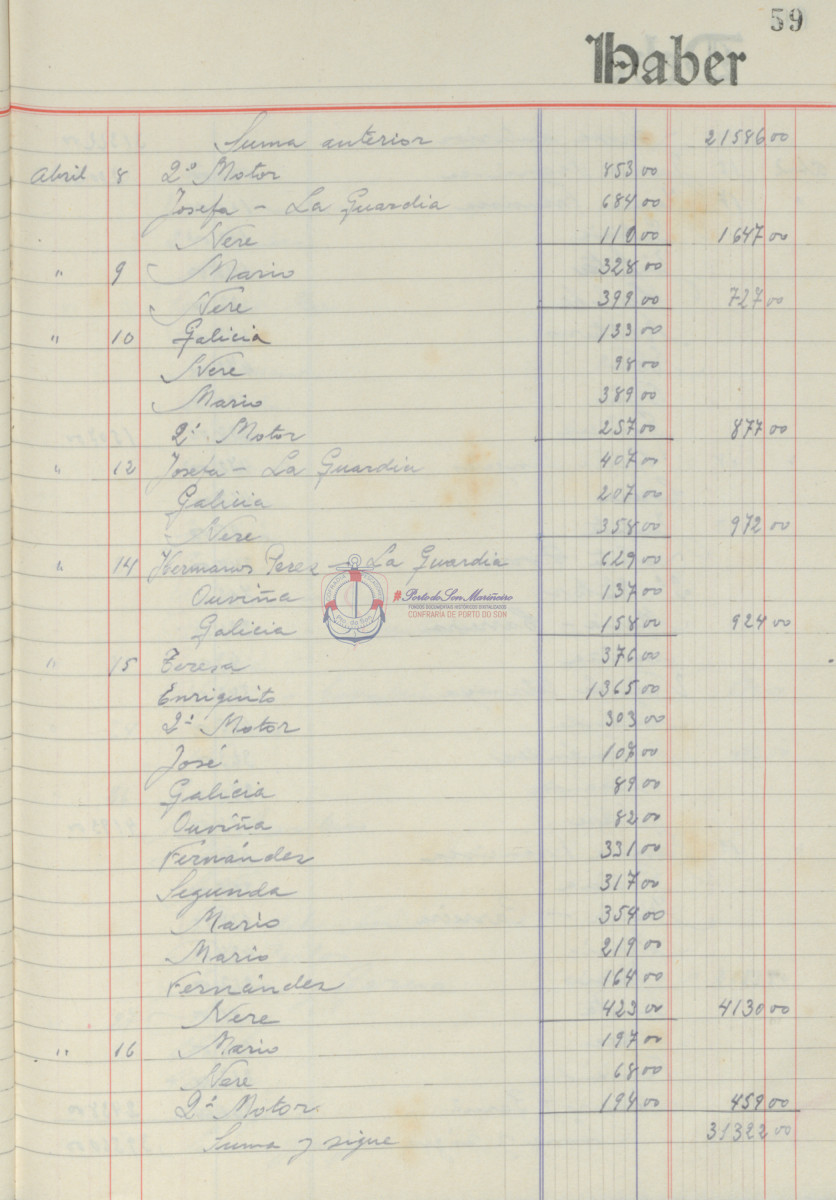 59
Haber
Suma anterior 21586 00
Abril 8 2º Motor 853 00
Josefa - La Guardia 684 00
Nere 110 00 1647 00
" 9 Mario 328 00
Nere 399 00 727 00
" 10 Galicia 133 00
Nere 98 00
Mario 389 00
2º Motor 257 00 877 00
" 12 Josefa - La Guardia 407 00
Galicia 207 00
Nere 358 00 972 00
" 14 Hermanos Perez - La Guardia 629 00
Ouviña 137 00
Galicia 158 00 924 00
" 15 Teresa 376 00
Enriquito 1365 00
2º Motor 303 00
José 107 00
Galicia 89 00
Ouviña 82 00
Fernández 331 00
Segunda 317 00
Mario 354 00
Mario 219 00
Fernández 164 00
Nere 423 00 4130 00
" 16 Mario 197 00
Nere 68 00
2º Motor 194 00 459 00
Suma y sigue 31322 00
#Porto do Son Mariñeiro
FONDOS DOCUMENTAIS HISTÓRICOS DIXITALIZADOS
CONFRARÍA DE PORTO DO SON